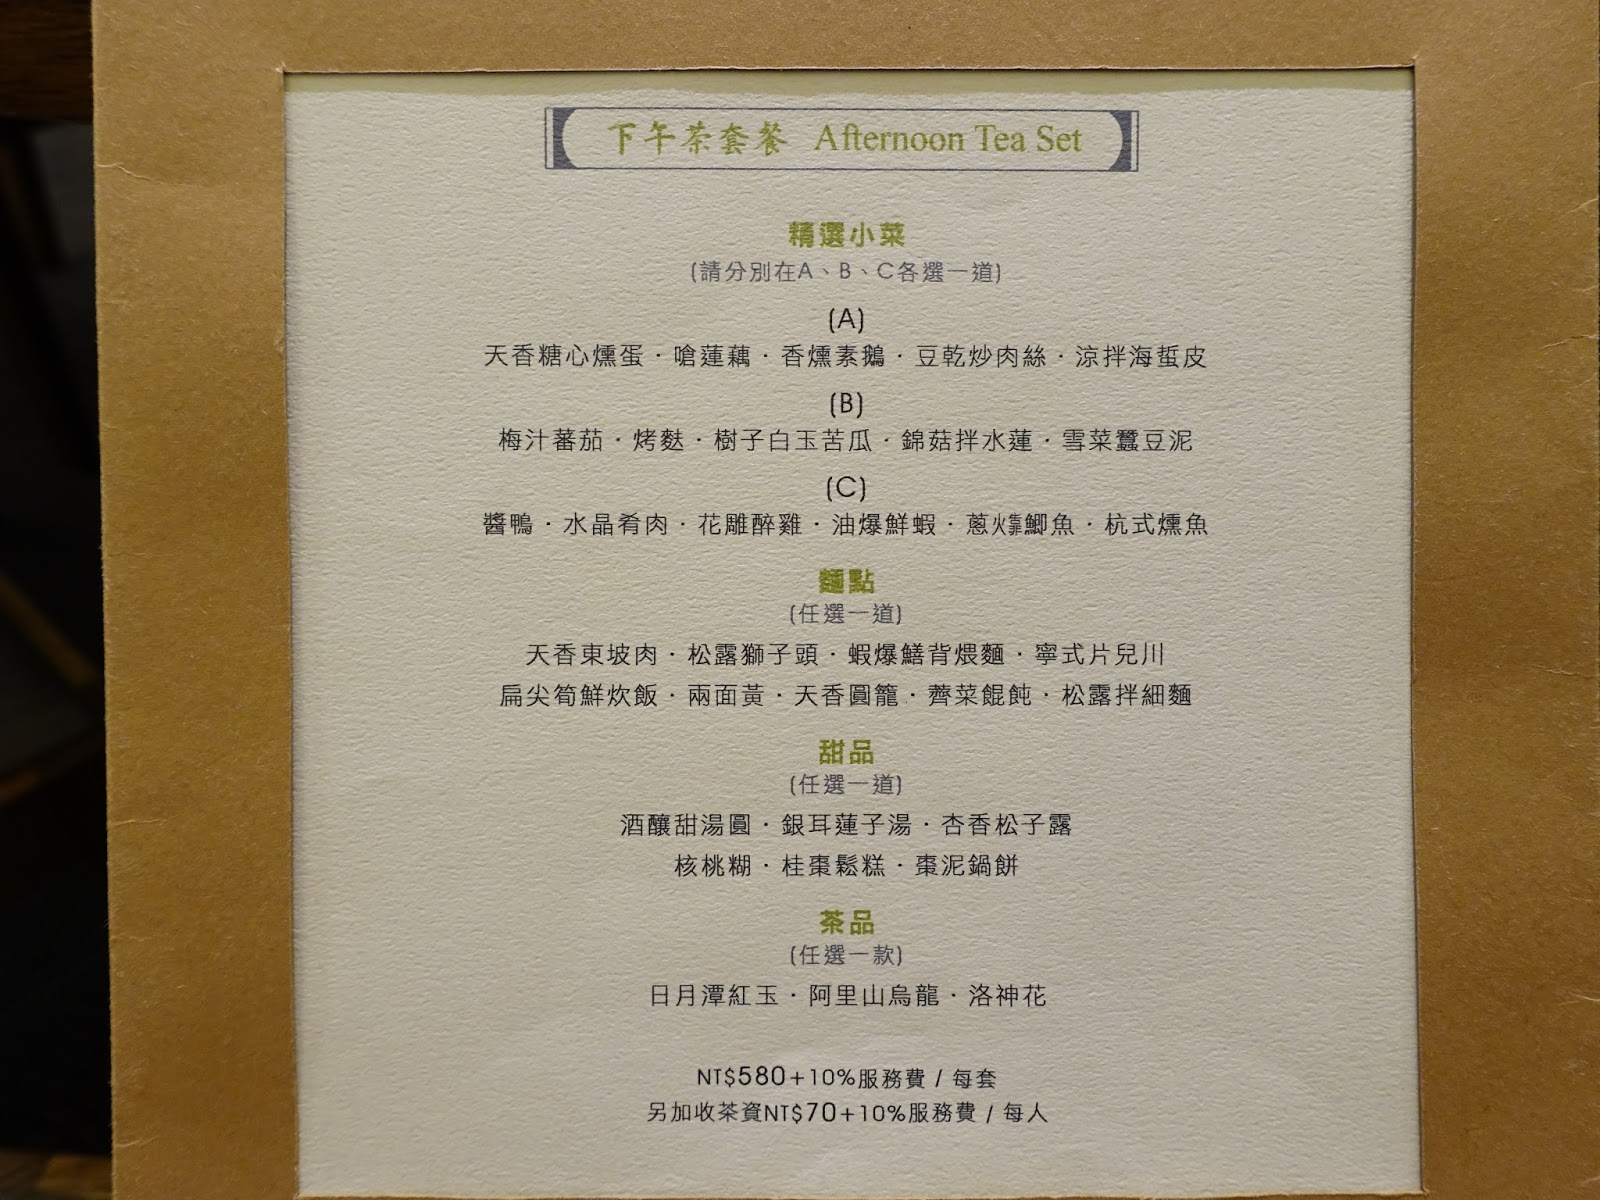 下午茶套餐 Afternoon Tea Set
精選小菜
(請分別在A、B、C各選一道)
(A)
天香糖心燻蛋．嗆蓮藕．香燻素鵝．豆乾炒肉絲．涼拌海蜇皮
(B)
梅汁蕃茄．烤麩．樹子白玉苦瓜．錦菇拌水蓮．雪菜蠶豆泥
(C)
醬鴨．水晶肴肉．花雕醉雞．油爆鮮蝦．蔥㸆鯽魚．杭式燻魚
麵點
(任選一道)
天香東坡肉．松露獅子頭．蝦爆鱔背煨麵．寧式片兒川
扁尖筍鮮炊飯．兩面黃．天香圓籠．薺菜餛飩．松露拌細麵
甜品
(任選一道)
酒釀甜湯圓．銀耳蓮子湯．杏香松子露
核桃糊．桂棗鬆糕．棗泥鍋餅
茶品
(任選一款)
日月潭紅玉．阿里山烏龍．洛神花
NT$580+10%服務費 / 每套
另加收茶資NT$70+10%服務費 / 每人